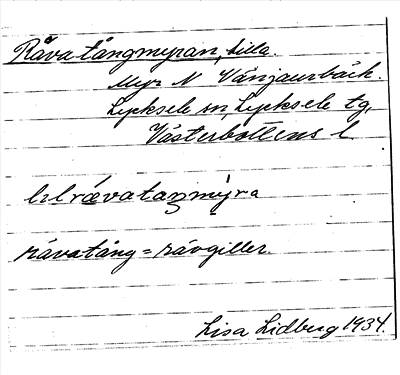 Rävatångmyran, lilla.
Myr N Vänjaurbäck.
Lycksele sn, Lycksele tg,
Västerbottens l
lıl rävataŋmýra
rävatång = rävgiller.
Lisa Lidberg 1934.